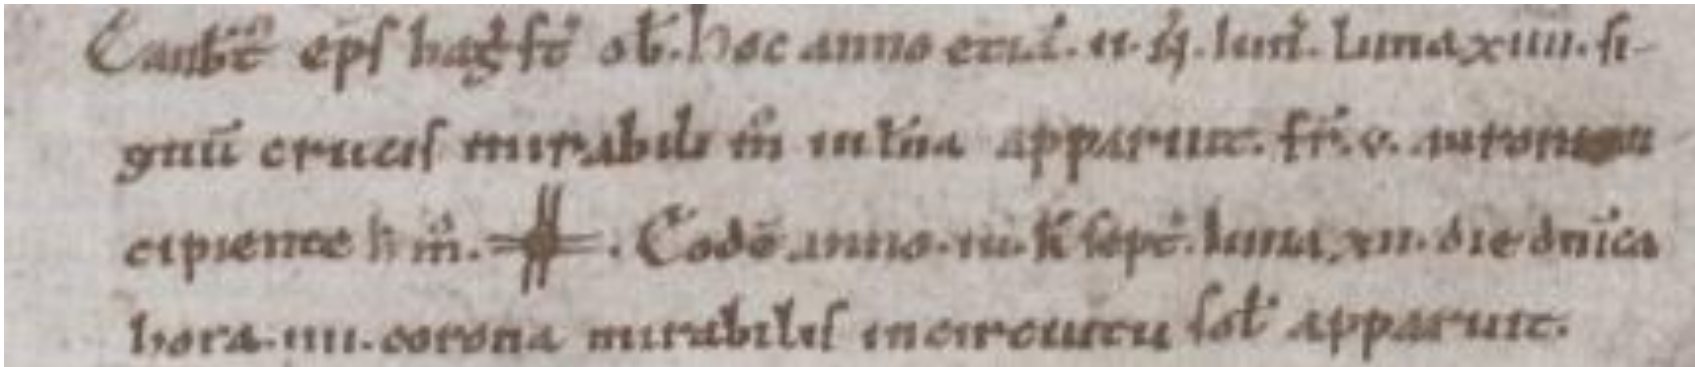 Eanbt᷒ eps̄ hag̃st᷒ ob̄. hoc anno etiā. ii. N̄. Iuni̅. Luna xiiii. si-
gnū crucis mirabili m̊ in lūna apparuit. fr̄. v. aurora in
cipiente h m̊. Eodē anno. iii. k̄ sept̄. luna xii. die dn̄ica
hora. iiii. corona mirabilis incircuitu sol̄ apparuit.